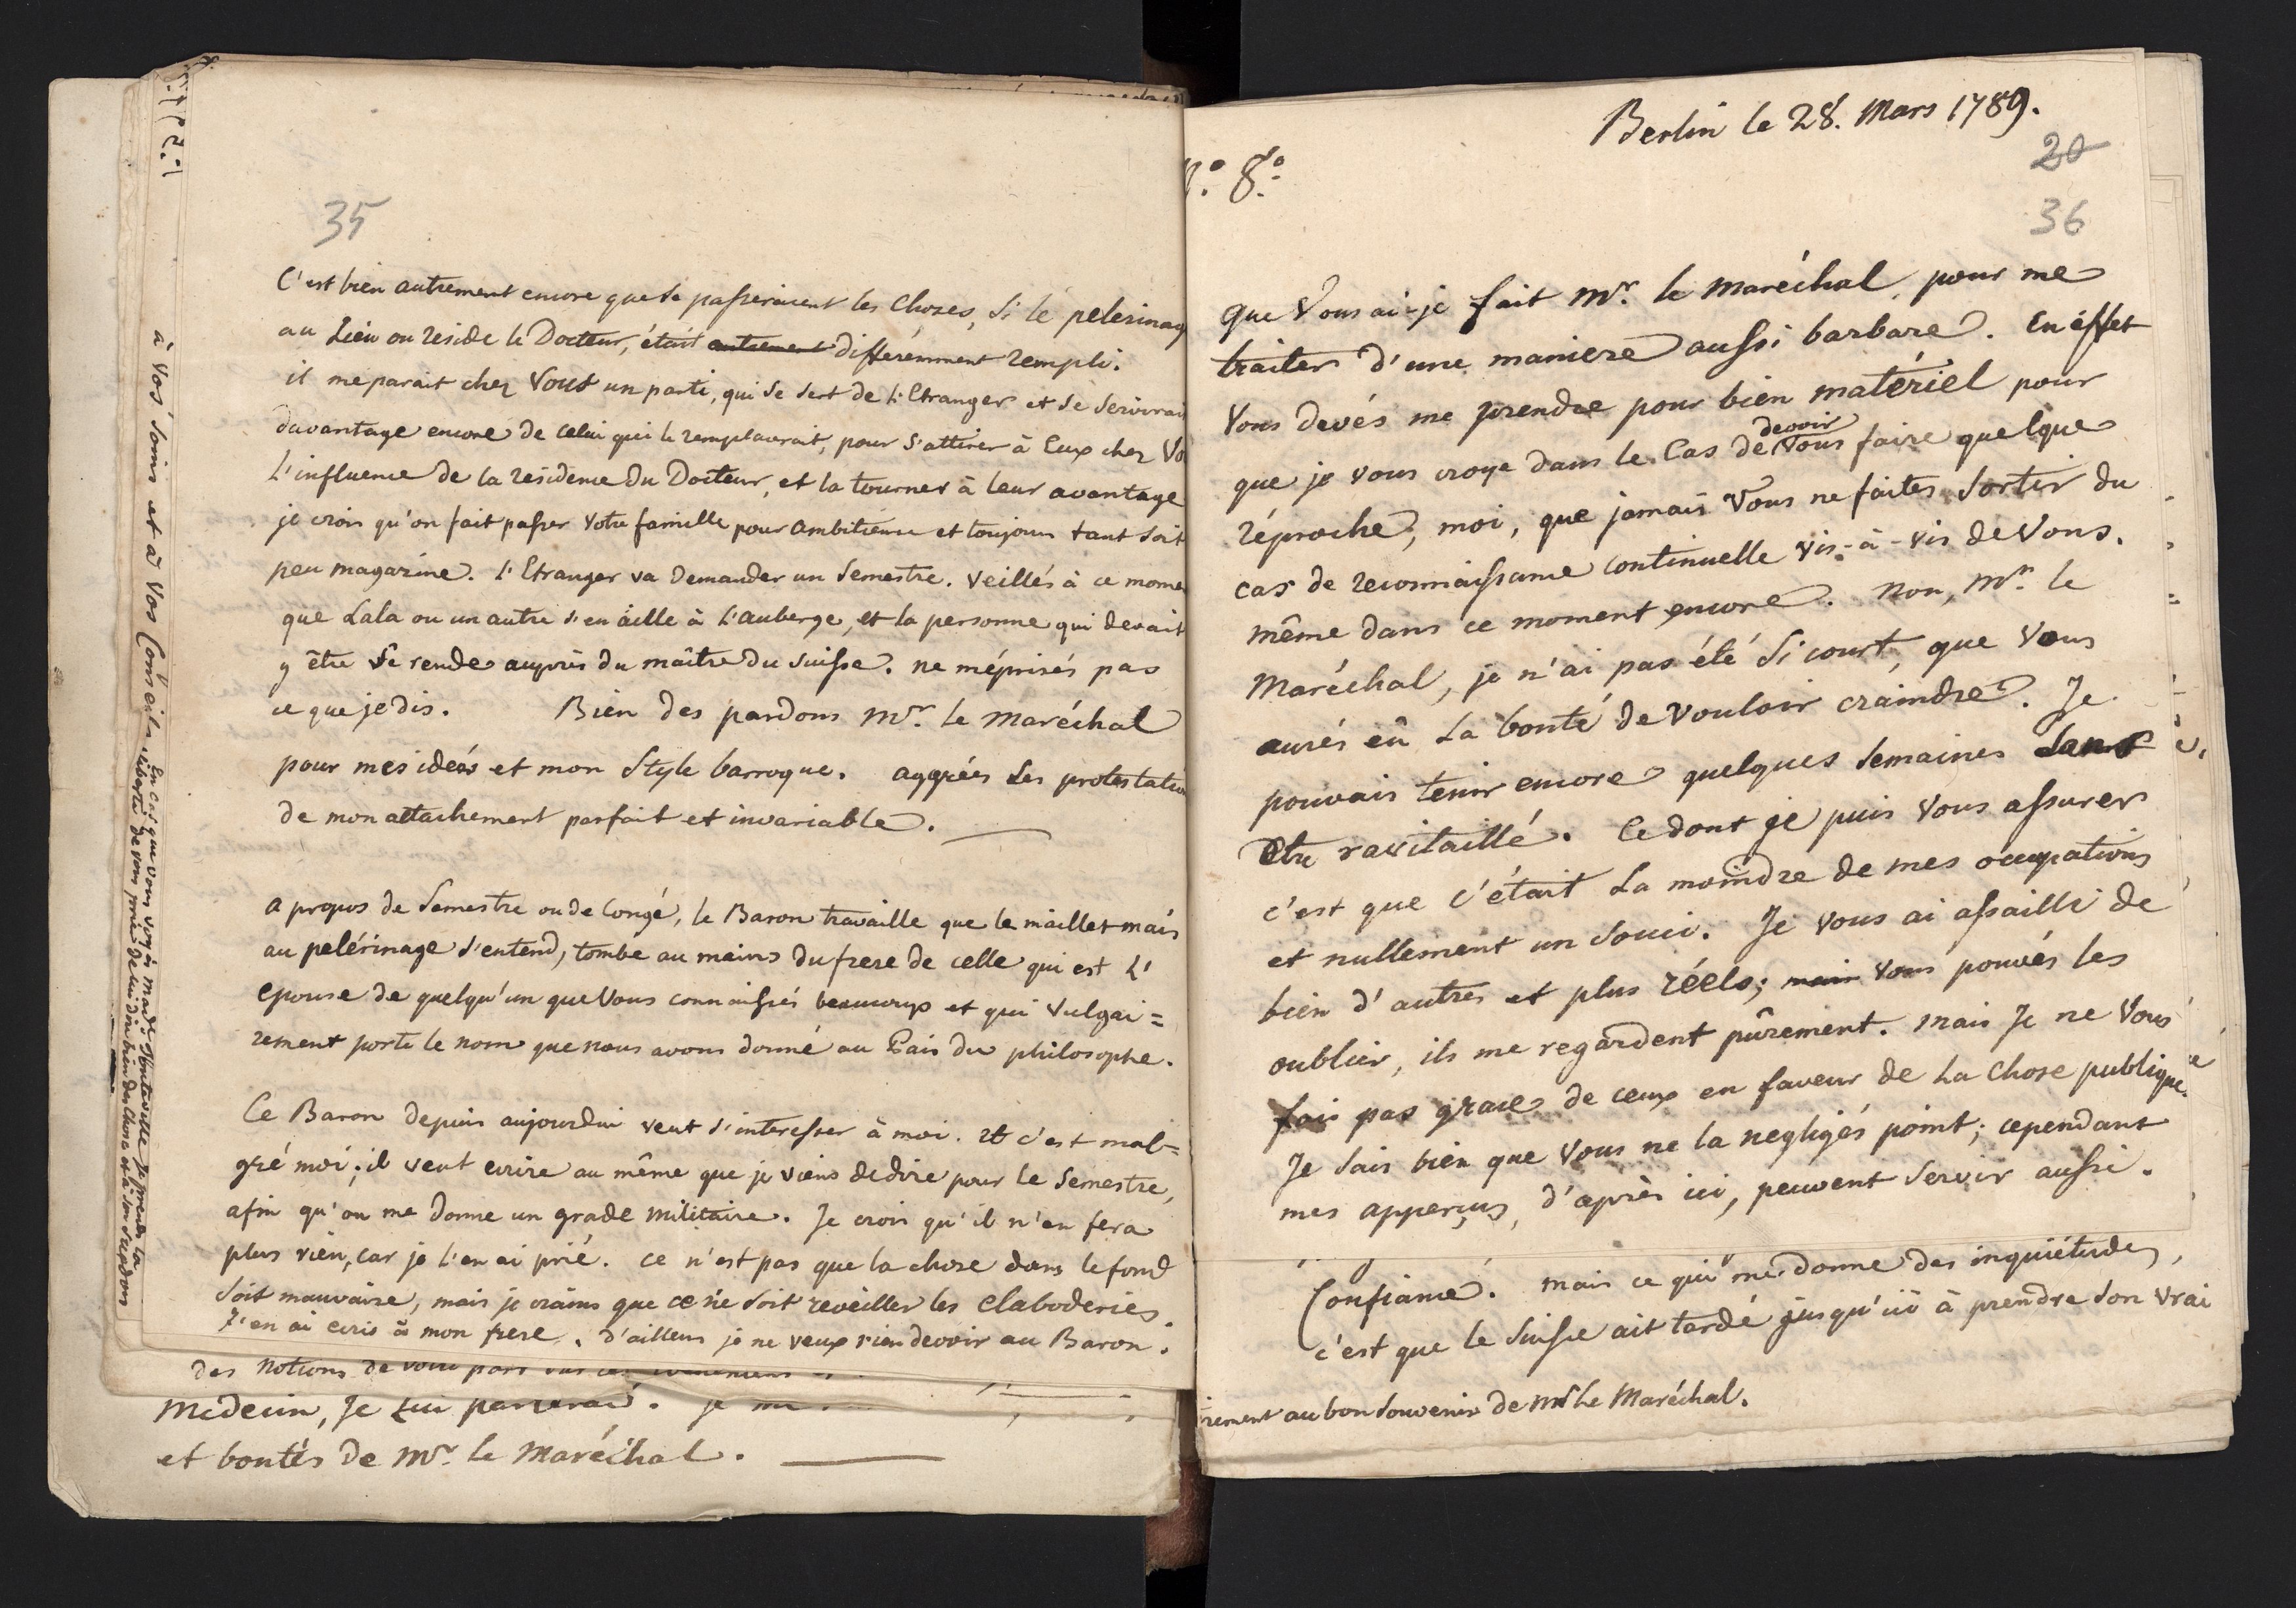 35
C'est bien autrement encore que se passeraient les choses, si le pelerinag
au Lieu ou reside le Docteur, était autrement differemment rempli.
il me parait chez Vous un parti, qui se sert de l'Etranger et se servirai
davantage encore de celui qui le remplacerait, pour s'attirer à Eux chez Vo
L'influence de la residence du Docteur, et la tourner à leur avantage
je crois qu'on fait passer votre famille pour ambitieuse et toujours tant soit
peu magazine. L'Etranger va demander un Semestre. veillés à ce mome
que Lala ou un autre s'en aille à l'auberge, et la personne qui devait
y être se rende auprès du maître du Suisse. ne méprisés pas
ce que je dis. Bien des pardons Mr. le Maréchal
pour mes ideés et mon Style barroque. aggrées les protestatio
de mon attachement parfait et invariable.
a propos de Semestre ou de Congé, le Baron travaille que le maillet mais
au pelérinage s'entend, tombe au mains du frere de celle qui est L'
epouse de quelqu'un que Vous connaissés beaucoup et qui Vulgai=
rement porte le nom que nous avons donné au Païs du philosophe.
Ce Baron depuis aujourdui veut s'interesser à moi. et c'est mal=
gré moi; il veut ecrire au même que je viens de dire pour le Semestre,
afin qu'on me donne un grade militaire. Je crois qu'il n'en fera
plus rien, car je l'en ai prié. ce n'est pas que la chose dans le fond
soit mauvaise, mais je crains que ce ne soit reveiller les Claboderies.
J'en ai ecris à mon frere. d'ailleurs je ne veux rien devoir au Baron.
des Notions de votre part sur ces
Medecin, Je Lui parlerai. je
et bontés de Mr. le Maréchal.
à Vos soins et à Vos Conseils.
En cas que vous voyés Made. Hauteville je prends la
liberté de vous prier de lui dire bien des choses et à Son
No. 8o.
Berlin le 28. Mars 1789.
20
36
Que Vous ai-je fait Mr. le Maréchal, pour me
traiter d'une maniere aussi barbare. En éffet
Vous devés me prendre pour bien matériel pour
que je vous croye dans le Cas de devoir Vous faire quelque
réproche, moi, que jamais Vous ne faites sortir du
cas de reconnaissance continuelle vis-à-vis de Vous.
même dans ce moment encore. Non, Mr. le
Maréchal, je n'ai pas été si court, que Vous
aurés eû la bonté de vouloir craindre. Je
pouvais tenir encore quelques semaines sans
être ravitaillé. Ce dont je puis Vous assurer
c'est que c'était la moindre de mes occupations
et nullement un souci. Je vous ai assailli de
bien d'autres et plus réels; mais vous pouvés les
oublier, ils me regardent pûrement. mais Je ne Vous
fais pas grace de ceux en faveur de la chose publique.
Je sais bien que Vous ne la negligés point; cependant
mes apperçus, d'après ici, peuvent servir aussi.
Confiance. mais ce qui me donne des inquiétudes,
c'est que le Suisse ait tardé jusqu'ici à prendre son vrai
rement au bon souvenir de Mr le Maréchal.